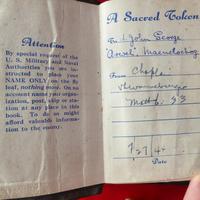 Attention
By special request of the
U. S. Military and Naval
Authorities you are in-
structed to place your
NAME ONLY on the fly
leaf, nothing more. On no
account name your organ-
ization, post, ship or sta-
tion at any place in this
book. To do so might
afford valuable inform-
ation to the enemy.
A Sacred Token
To John George
From Chapl.
Matt 6:33
Date